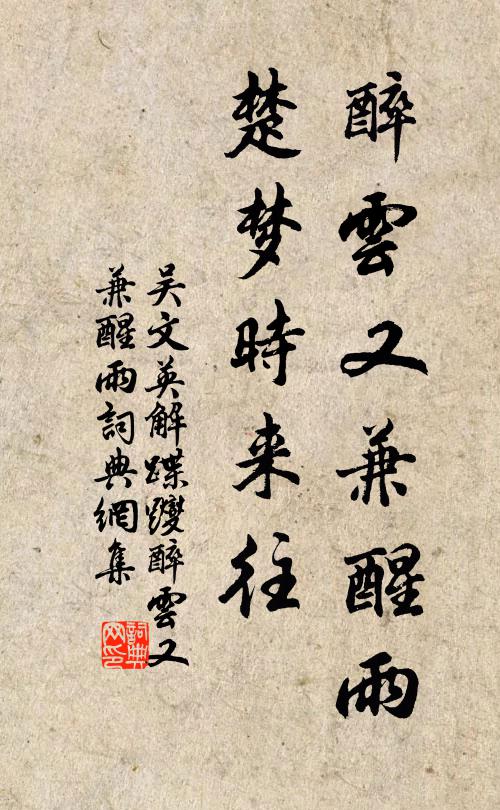 醉雲又兼醒雨
楚梦時来往
吴文英解蹀躞醉雲又
兼醒雨詞典網集
詞典网印